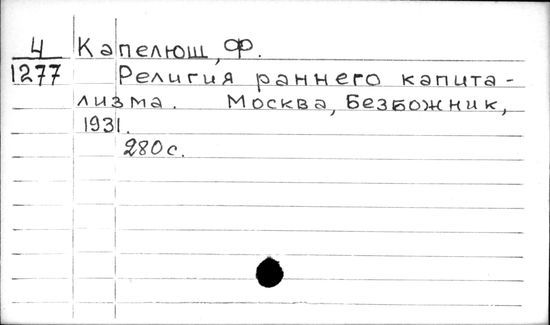 4 Капелюш, Ф.
1277 Религия раннего капита-
лизма. Москва, Безбожник,
1931.
280 с.